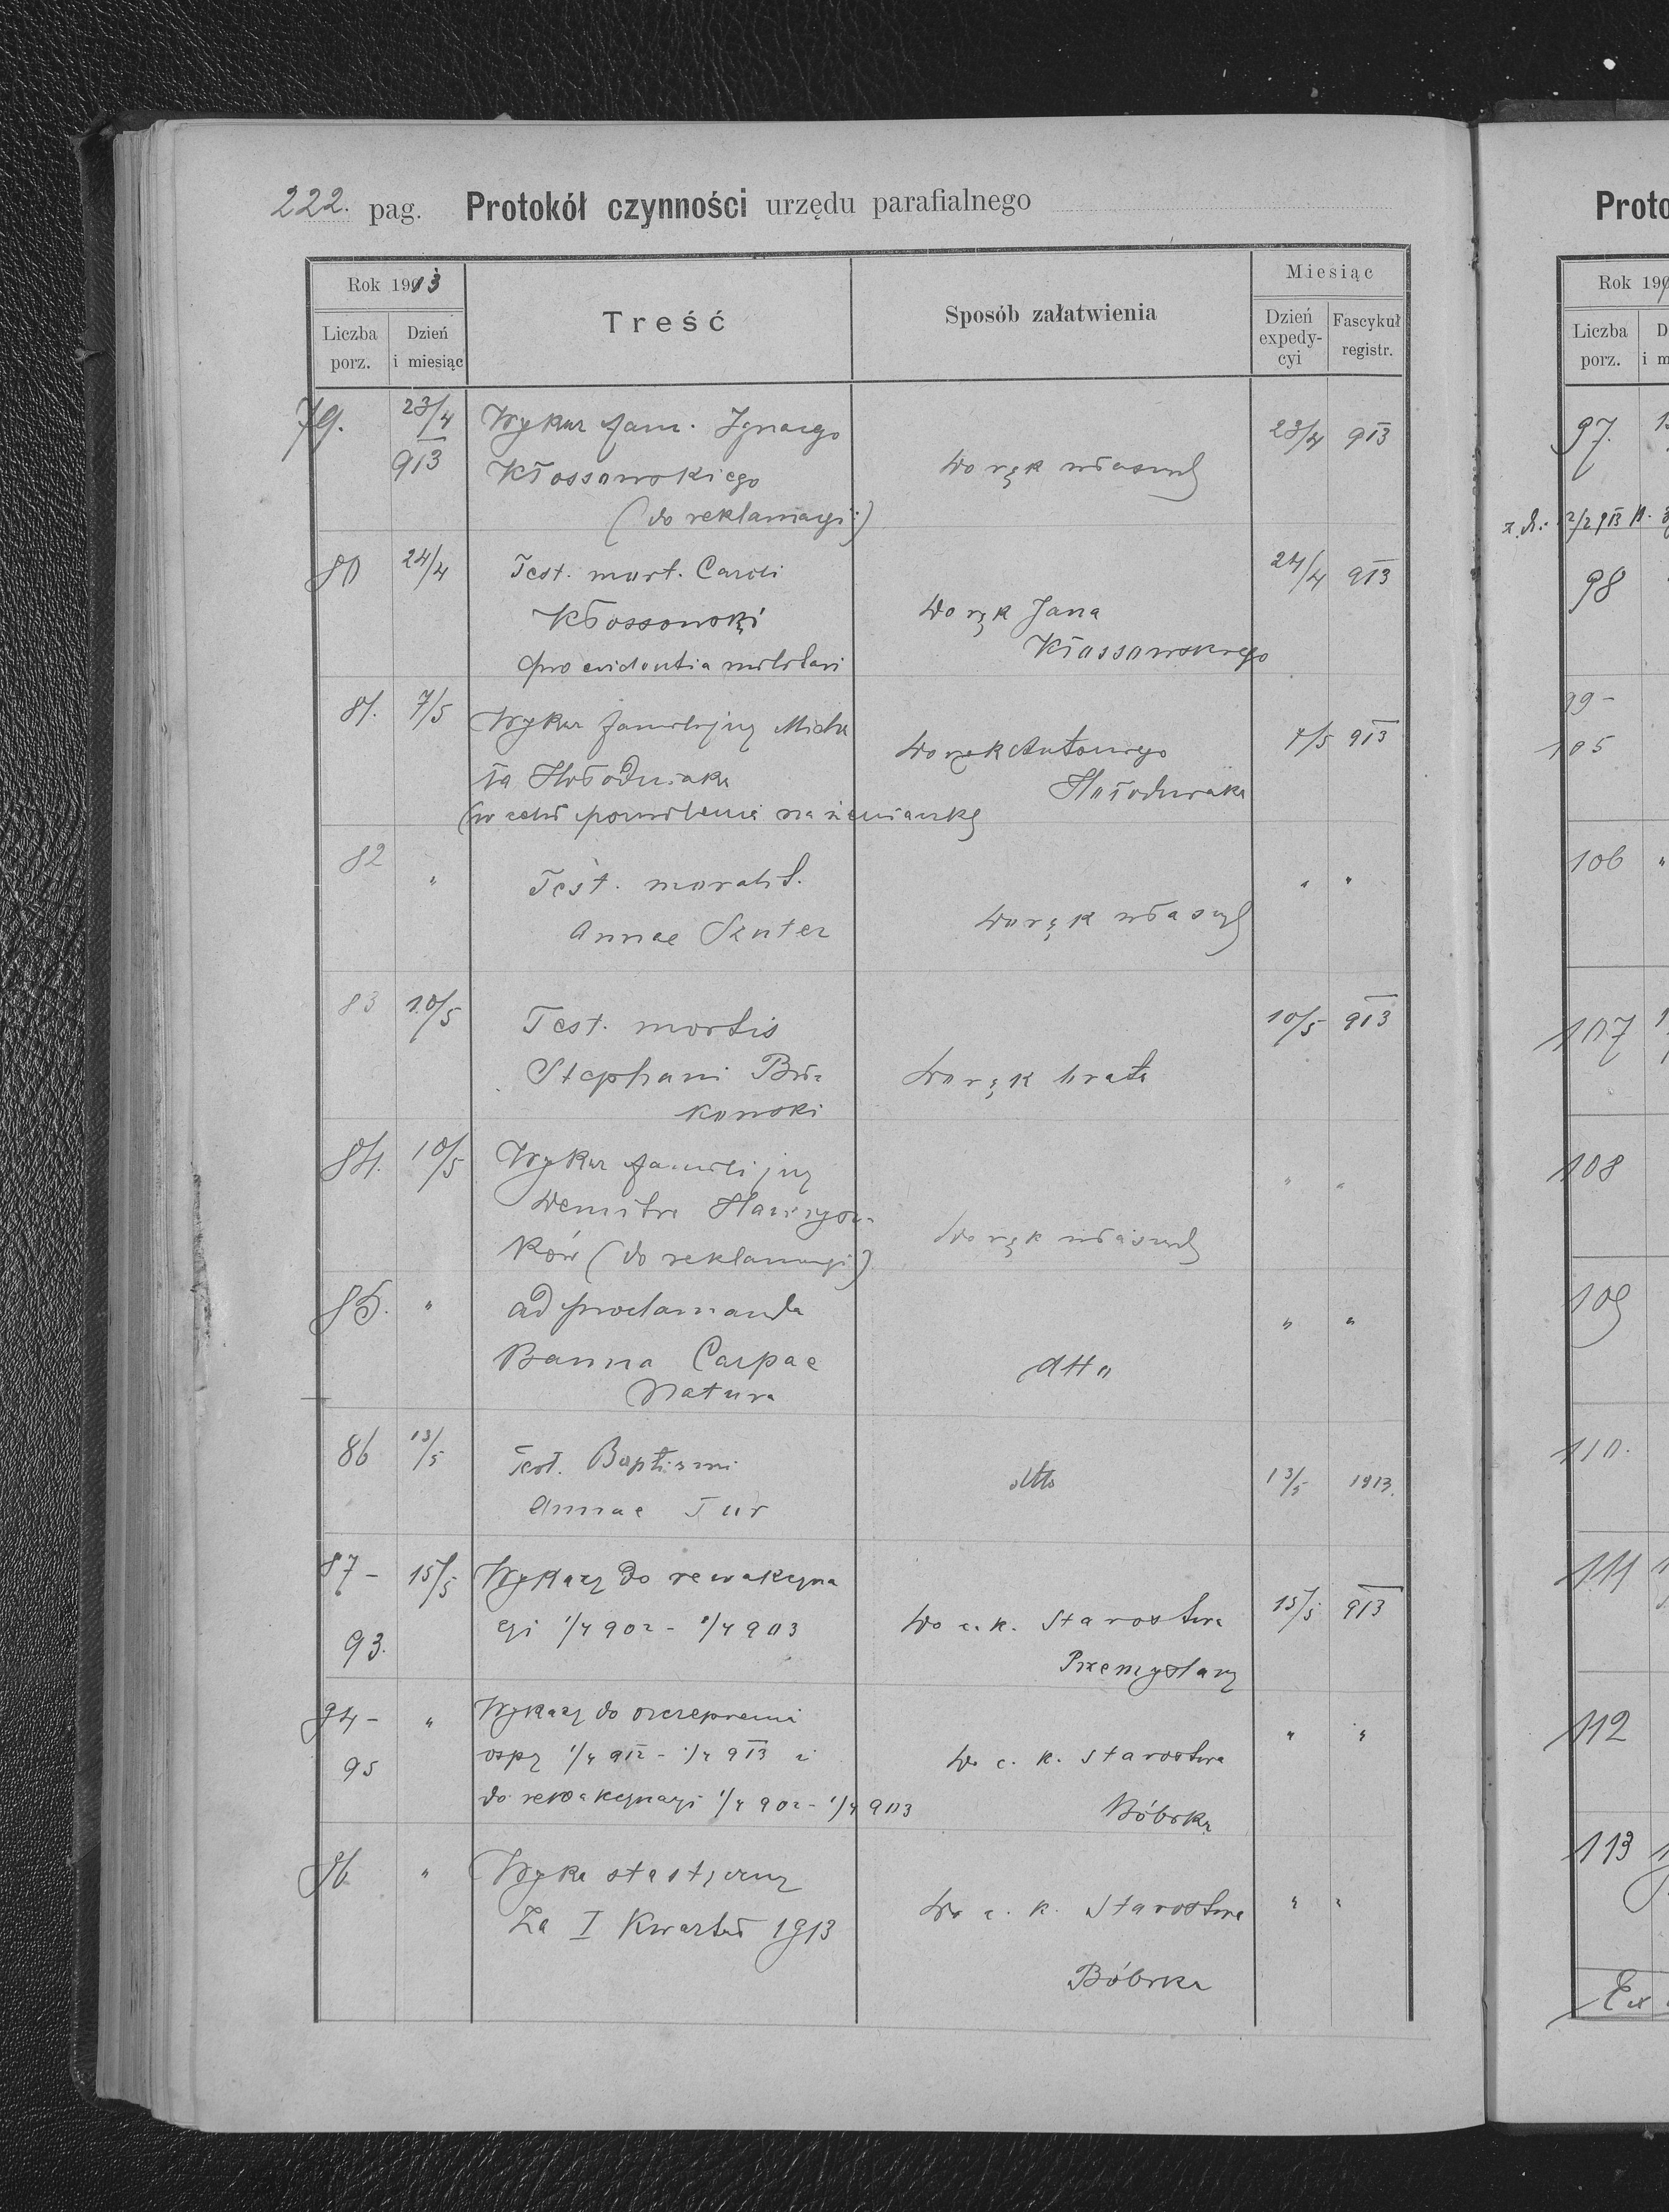 222. pag. Protokół czynności urzędu parafialnego
Rok 1913
Liczba porz.
Dzień i miesiąc
Treść
Sposób załatwienia
Miesiąc
Dzień expedycyi
Fascykuł registr.
79. 23/4 913 Wykaz fam. Ignacego
Kłossowskiego
(do reklamacyi)
Do rąk własnych
23/4 913
80 24/4 Test. mort. Caroli
Kłossowski
pro evidentia militari
Do rąk Jana
Kłossowskiego
24/4 913
81. 7/5 Wykaz familijny Micha
ła Hołodniaka
(w celu pozwolenia na żeniaczkę
Do rąk Antoniego
Hołodniaka
7/5 913
82 " Test. moralit.
Annae Szuter
Do rąk własnych
" "
83 10/5 Test. mortis
Stephani Bu-
kowski
Do rąk brata
10/5 913
84. 10/5 Wykaz familijny
Demitra
ków (do reklamacyi)
Do rąk własnych
" "
85. " ad proclamanda
Banna Carpae
Natura
dtto
" "
86 13/5 Test. Baptismi
Annae Tur
dtto
13/5 1913.
87 - 15/5 Wykazy do rewakcyna
93. cyi 1/4 902 - 1/4 903
Do c. k. Starostwa
Przemyślany
15/5 913
94 - " Wykazy do szczepienia
95 ospy 1/4 912 - 1/4 913 i
do rewakcynacyi 1/4 902 - 1/4 903
Do c. k. Starostwa
Bóbrka
" "
96 "
Za I Kwartał 1913
Do c. k. Starostwa
Bóbrka
" "
Proto
Rok 190
Liczba porz.
D
i m
97.
98
99 -
105
106 "
107
108
109
110.
111
112
113